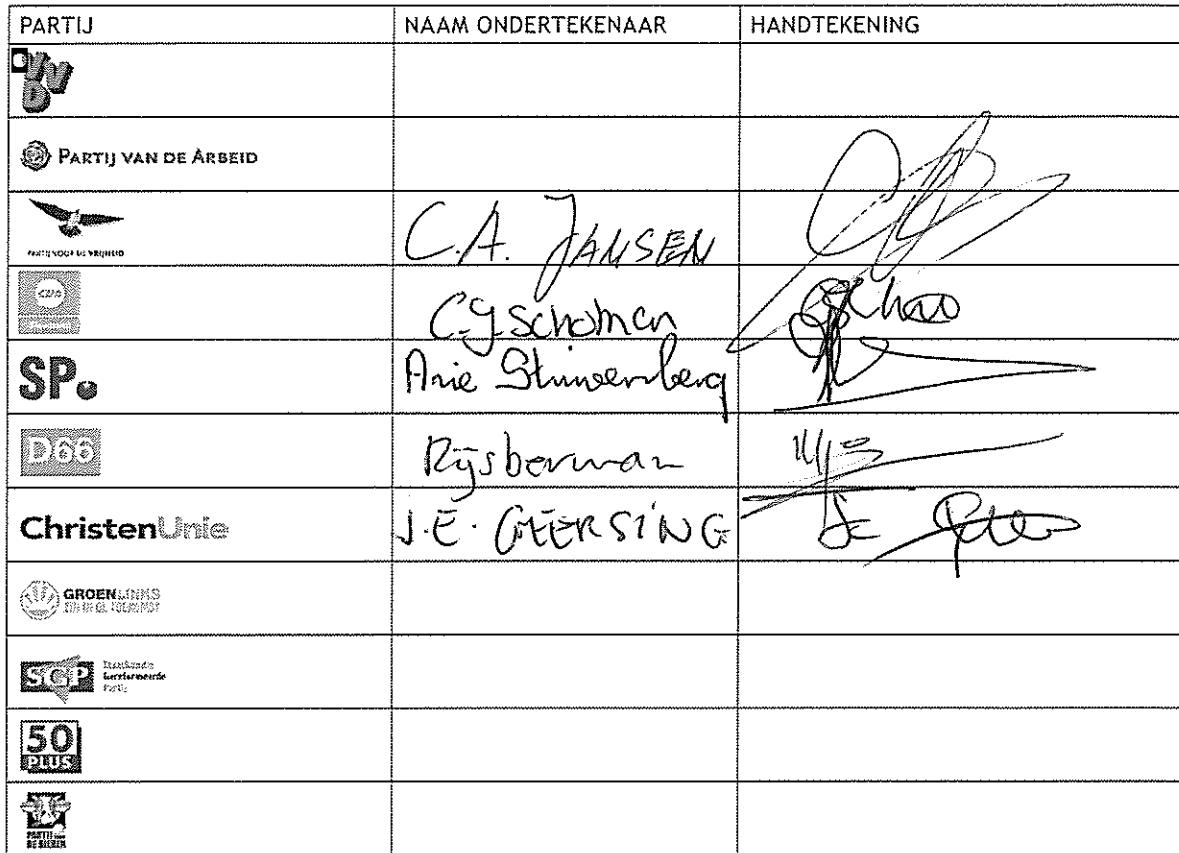 PARTIJ NAAM ONDERTEKENAAR HANDTEKENING
VVD
PARTIJ VAN DE ARBEID
PARTIJ VOOR DE VRIJHEID C.A. JANSEN
CDA C.J. Schoman
SP. Arie
D66 Rijsberman
ChristenUnie J.E. GEERSING
GROENLINKS
SGP Staatkundig
Gereformeerde
Partij
50
PLUS
PARTIJ voor
DE DIEREN